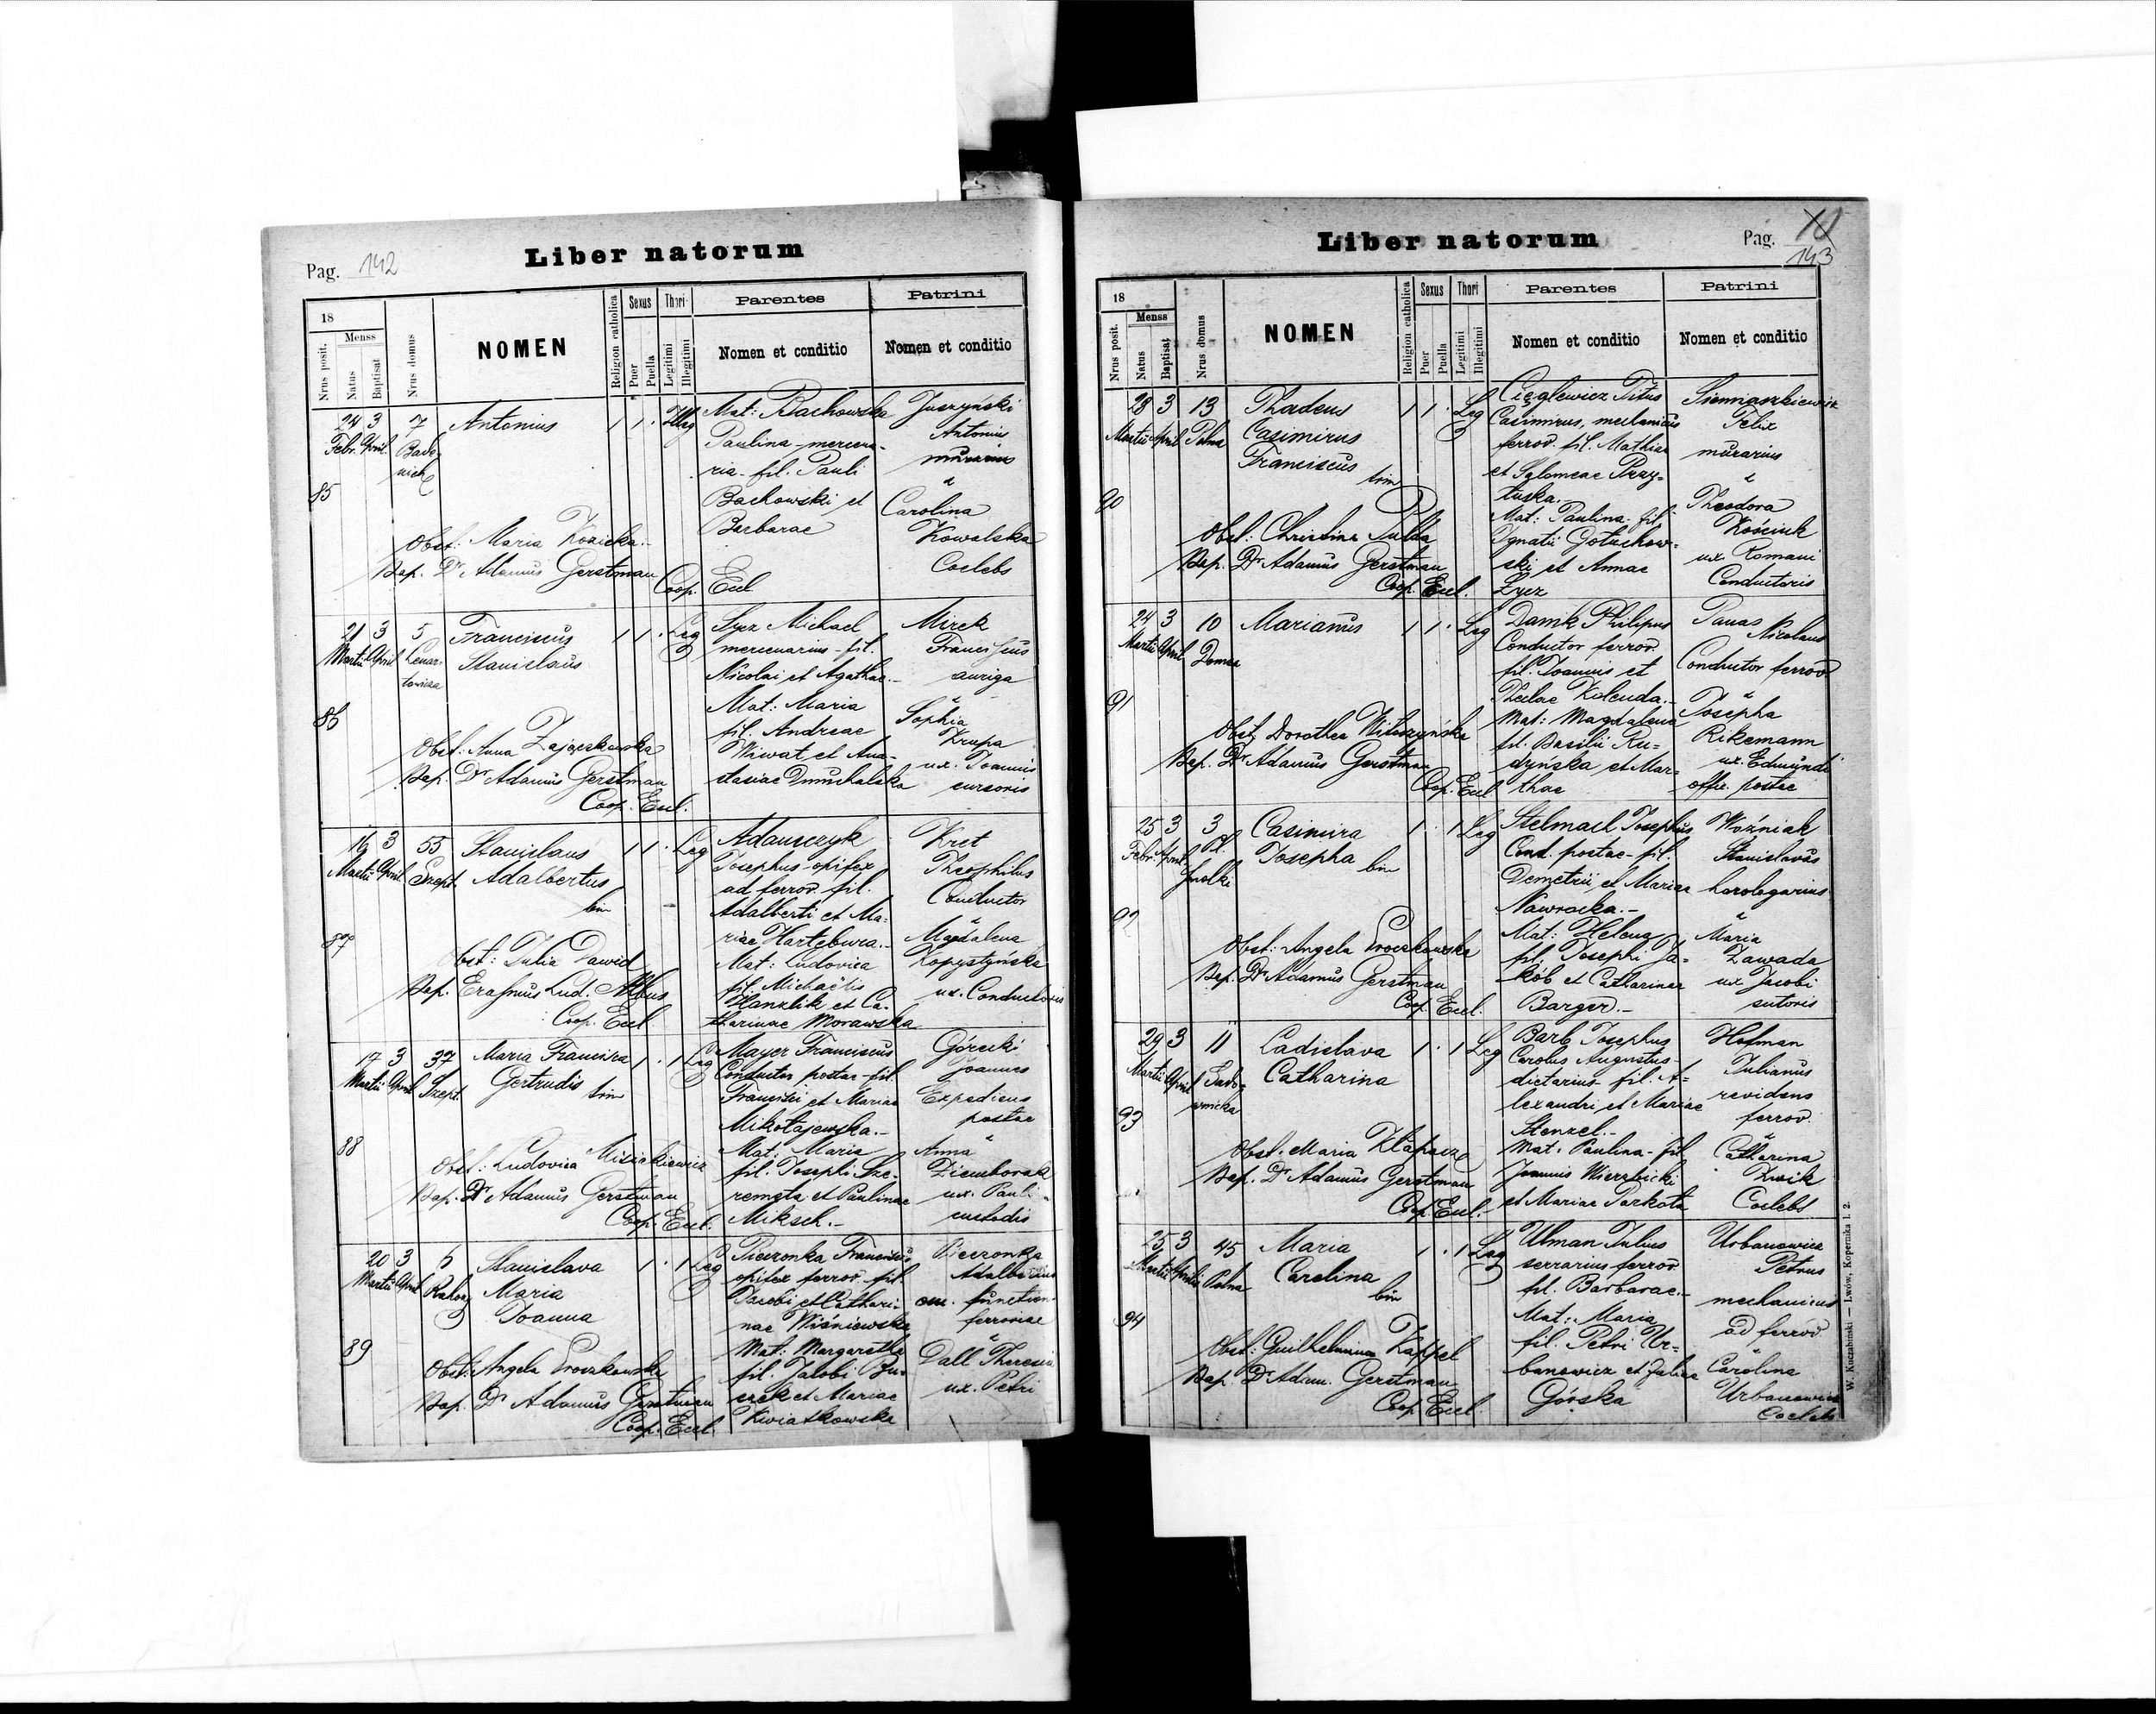 Liber natorum
Pag. 142
18
Menss
Nrus posit.
Natus
Baptisat
Nrus domus
NOMEN
Religion catholica
Sexus
Puer
Puella
Thori
Legitimi
Illegitimi
Parentes
Nomen et conditio
Patrini
Nomen et conditio
85
24 Febr.
3 April.
7
Antonius
1 1 . Illeg
Mat: Bachowska
Paulina - mercena-
ria - fil. Pauli
Bachowski et
Barbarae
Juszyński
Antonius
murarius
Carolina
Kowalska
Coelebs
Obst: Maria Kozicka
Bap. Dr Adamus Gerstman
Coop. Eccl.
86
21 Martii
3 April
5
Franciscus
Stanislaus
1 1 . Leg
Michael
mercenarius - fil.
Nicolai et Agathae
Mat: Maria
fil. Andreae
Wiwat et Ana-
stasiae Dmuchalska
Mirek
Franciscus
auriga
Sophia
Krupa
ux. Joannis
cursoris
Obst: Anna
Bap. Dr Adamus Gerstman
Coop. Eccl.
87
16 Martii
3 April
55
Szept.
Stanislaus
Adalbertus
bin
1 1 . Leg
Adamczyk
Josephus - opifex
ad ferrov. fil.
Adalberti et Ma-
riae
Mat: Ludovica
fil. Michaëlis
Hanzlik et Ca-
tharinae Morawska
Kret
Theophilus
Conductor
Magdalena
Kopystyńska
ux. Conductoris
Obst: Julia Dawid
Bap. Erasmus Lud. Albus
Coop. Eccl
88
17 Martii
3 April
37
Szept.
Maria Francisca
Gertrudis
trin
1 . 1 Leg
Mayer Franciscus
Conductor postae - fil.
Francisci et Mariae
Mikołajewska.-
Mat: Maria
fil. Josephi Sze-
remęta et Paulinae
Miksch.-
Górecki
Joannes
Expediens
postae
Anna
Ziemborak
ux. Pauli
custodis
Obst: Ludovica Misiakiewicz
Bap. Dr Adamus Gerstman
Coop. Eccl.
89
20 Martii
3 April
Stanislava
Maria
Joanna
1 . 1 Leg
Pieczonka Franciscus
opifex ferrov. fil.
Jacobi et Cathari-
nae Wiśniewska
Mat: Margaretha
fil. Jacobi
et Mariae
Kwiatkowska
Pieczonka
Adalbertus
function.
ferroviae
Dall Theresia
ux. Petri
Obst: Angela
Bap. Dr Adamus Gerstman
Coop. Eccl.
Liber natorum
Pag. 143
18
Menss
Nrus posit.
Natus
Baptisat
Nrus domus
NOMEN
Religion catholica
Sexus
Puer
Puella
Thori
Legitimi
Illegitimi
Parentes
Nomen et conditio
Patrini
Nomen et conditio
90
28 Martii
3 April
13
Palma
Thadeus
Casimirus
Franciscus
trin
1 1 . Leg
Cięglewicz Titus
Casimirus, mechanicus
ferrov. fil. Mathiae
et Salomeae Przy-
łuska.-
Mat: Paulina fil.
Ignatii Gołuchow-
ski et Annae
Łycz
Siennaszkiewicz
Felix
murarius
Theodora
Kościuk
ux Romani
Conductoris
Obst: Christina
Bap. Dr Adamus Gerstman
Coop. Eccl.
91
24 Martii
3 April
10
Marianus
1 1 . Leg
Damk Philipus
Conductor ferrov.
fil. Joannis et
Theclae Kolenda.-
Mat: Magdalena
fil. Basilii Ru-
dyńska et Mar-
thae
Panas
Nicolaus
Conductor ferrov
Josepha
Rikemann
ux. Edmundi
offic. postae
Obst: Dorothea
Bap. Dr Adamus Gerstman
Coop. Eccl
92
25 Febr.
3 April
3
Casimira
Josepha
bin
1 . 1 Leg
Stelmach Josephus
Cond. postae - fil.
Demetrii et Mariae
Nawrocka.-
Mat: Helena
fil. Josephi Ja-
kób et Catharinae
Barger.-
Woźniak
Stanislaus
horologarius
Maria
Zawada
ux Jacobi
sutoris
Obst: Angela
Bap. Dr Adamus Gerstman
Coop. Eccl.
93
29 Martii
3 April
11
Ladislava
Catharina
1 . 1 Leg
Barb Josephus
Carolus Augustus
dietarius fil. A-
lexandri et Mariae
Stenzel.-
Mat: Paulina - fil.
Joannis Wierzbicki
et Mariae Parkota
Hofman
Julianus
revidens
ferrov.
Catharina
Zwik
Coelebs
Obst. Maria Kłapacz
Bap. Dr Adamus Gerstman
Coop. Eccl.
94
25 Martii
3 Aprilis
45
Palma
Maria
Carolina
bin
1 . 1 Leg
Ulman Julius
serrarius ferrov.
fil. Barbarae.-
Mat: Maria
fil. Petri Ur-
banowicz et Juliae
Górska
Urbanowicz
Petrus
mechanicus
ad ferrov
Carolina
Urbanowicz
Coelebs
Obst: Guilhelmina Kappel
Bap. Dr Adam. Gerstman
Coop. Eccl.
W. Kuczabiński — Lwów, Kopernika l. 2.